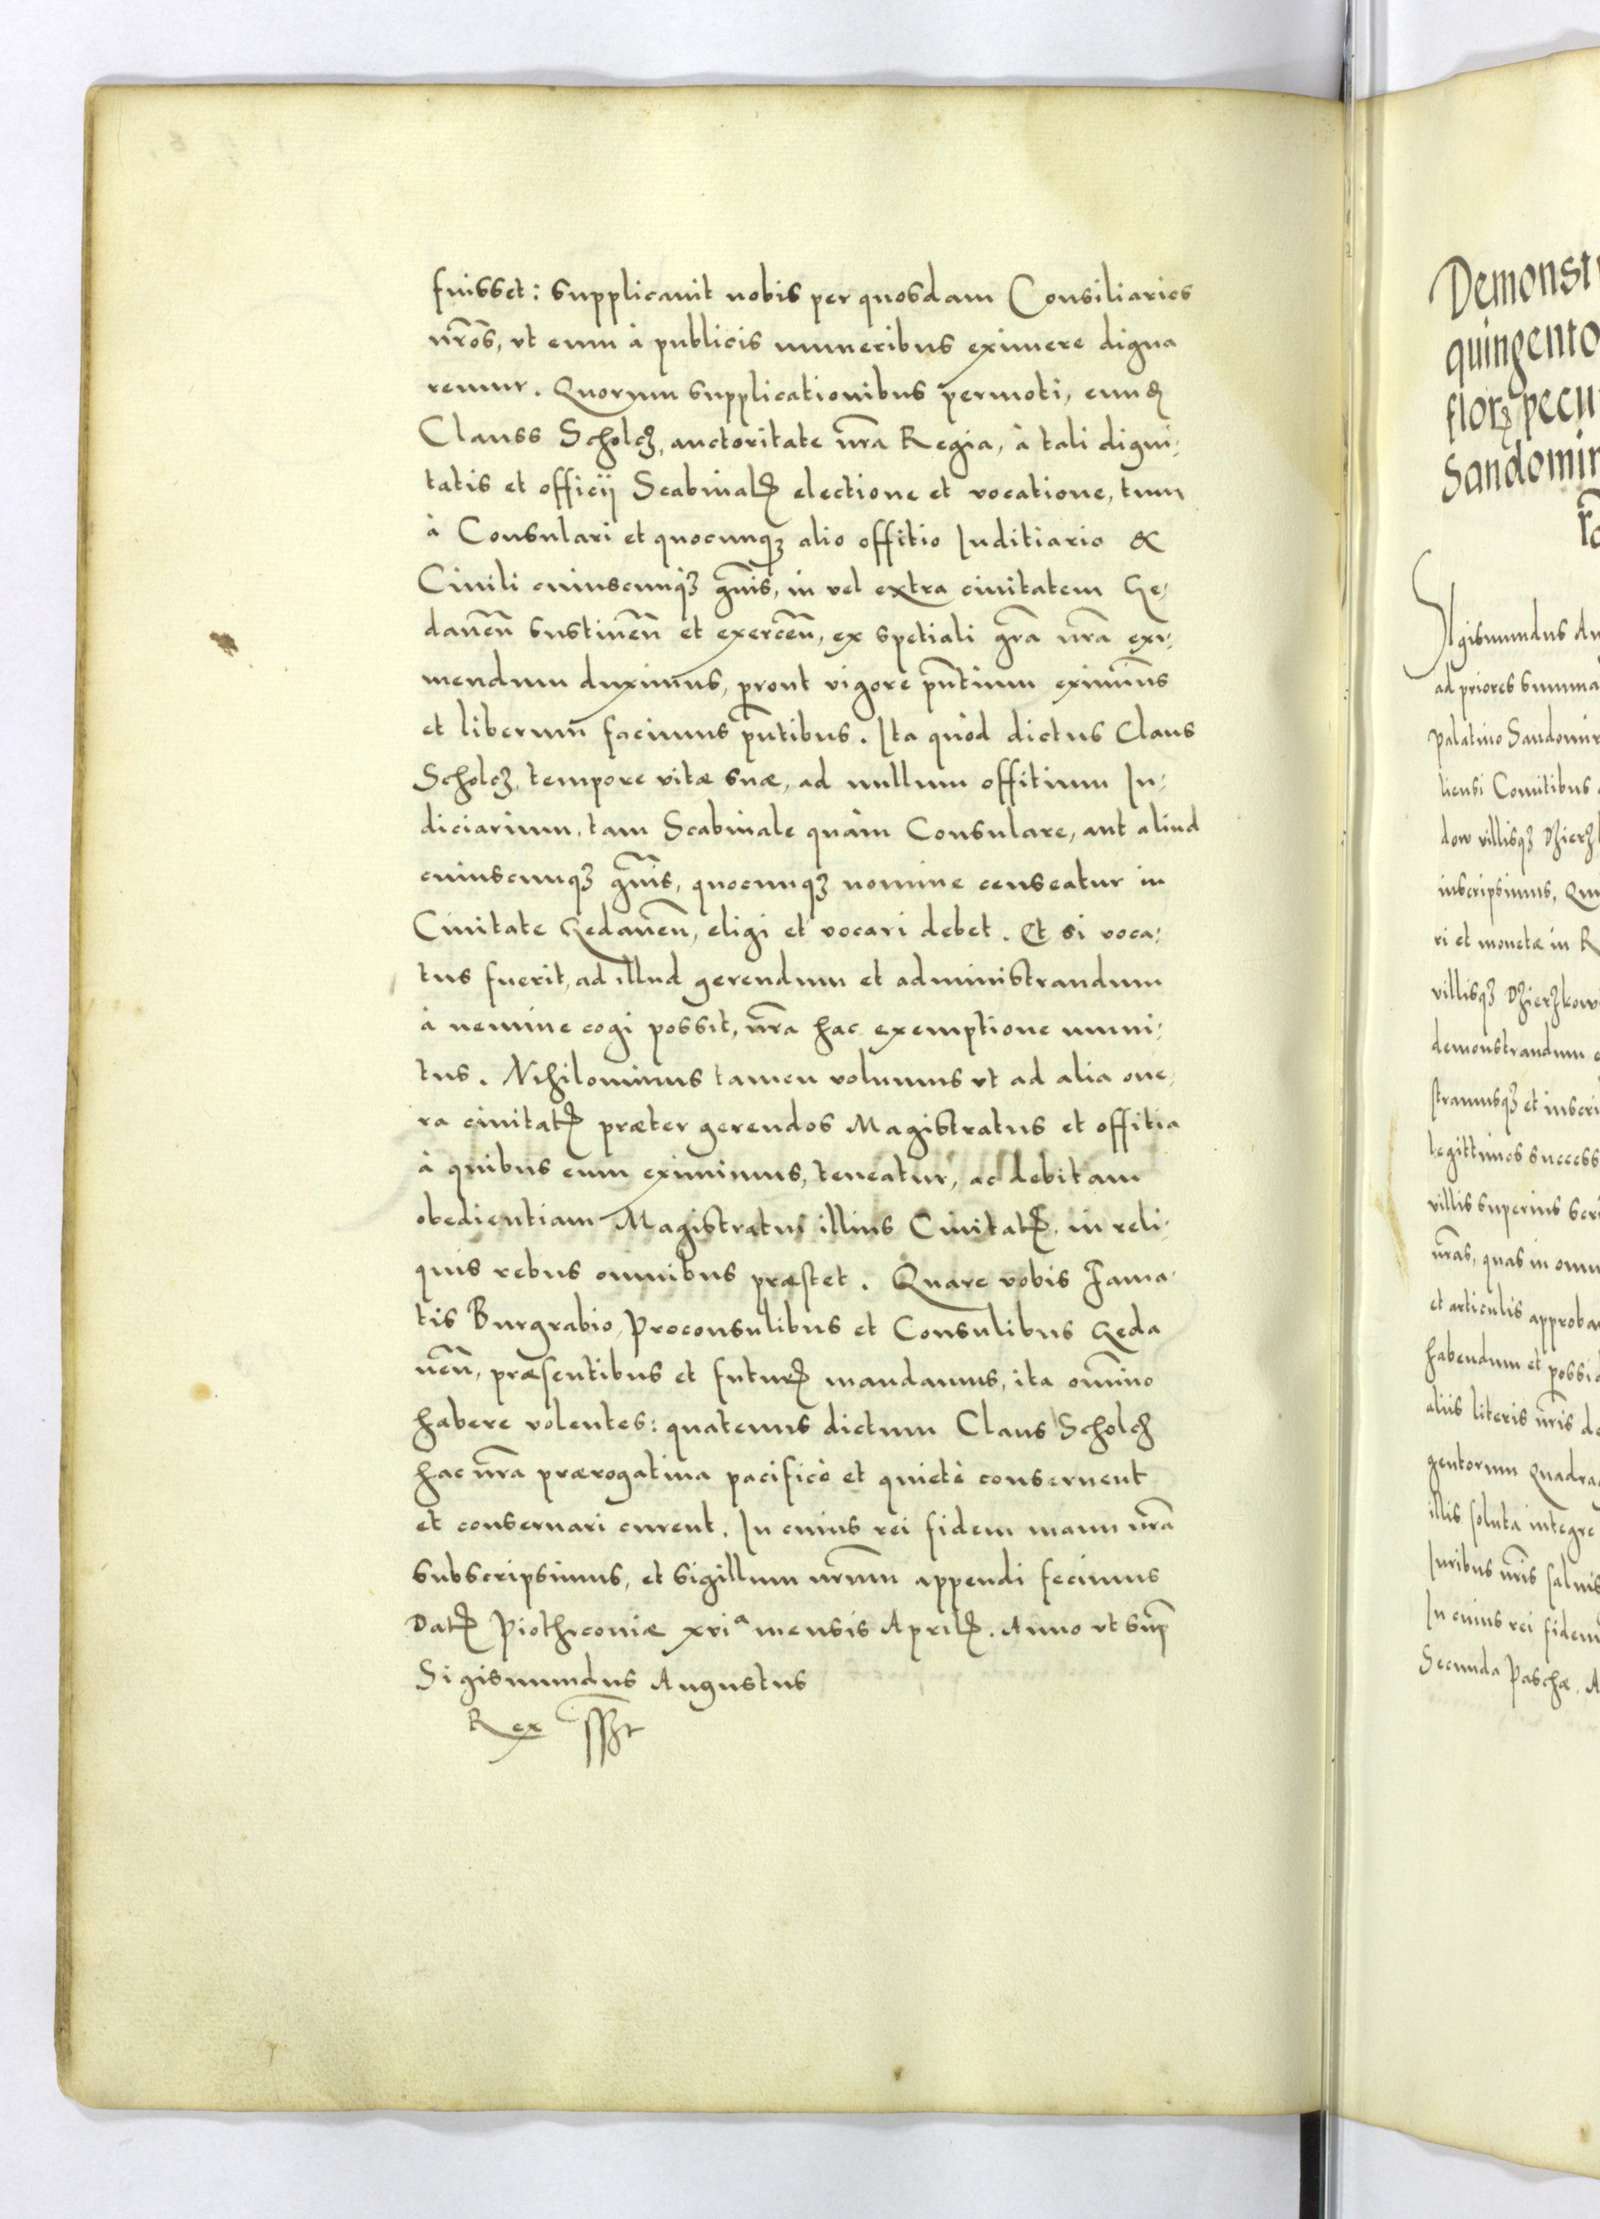 fuisset: supplicauit nobis per quosdam Consiliarios
nr̃os, vt eum à publicis muneribus eximere digna
remur. Quorum supplicationibus permoti, eundꝫ
Clauss Scholcz, auctoritate nr̃a Regia, à tali digni,
tatis et officij Scabinalꝭ electione et vocatione, tum
à Consulari et quocunqꝫ alio offitio Iuditiario &
Ciuili cuiuscunqꝫ gn̄is, in vel extra ciuitatem Ge,
daneñ sustineñ et exerceñ, ex spetiali gr̃a nr̃a exi,
mendum duximus, prout vigore pñtium eximimus
et liberum facimus pñtibus. Ita quòd dictus Claus
Scholcz, tempore vitæ suæ, ad nullum offitium Iu,
diciarium, tam Scabinale quàm Consulare, aut aliud
cuiuscunqꝫ gn̄is, quocunqꝫ nomine censeatur in
Ciuitate Gedaneñ, eligi et vocari debet. Et si voca,
tus fuerit, ad illud gerendum et administrandum
à nemine cogi possit, nr̃a hac exemptione muni,
tus. Nihilominus tamen volumus vt ad alia one,
ra ciuitatꝭ præter gerendos Magistratus et offitia
à quibus eum eximimus, teneatur, ac debitam
obedientiam Magistratui illius Ciuitatꝭ, in reli,
quis rebus omnibus præstet. Quare vobis Fama,
tis Burgrabio, Proconsulibus et Consulibus Geda
neñ, præsentibus et futurꝭ mandamus, ita om̃ino
habere volentes: quatenus dictum Claus Scholcz
hac nr̃a prærogatiua pacificè et quietè conseruent
et conseruari curent. In cuius rei fidem manu nr̃a
subscripsimus, et sigillum nr̃um appendi fecimus
Datꝭ Piothrcouiæ xviª mensis Aprilꝭ. Anno vt sup̃
Sigismundus Augustus
Rex sszt
Demonst
quingento
florꝝ pecu
Sandomir
Sigismundus Au
ad priores summa
palatino Sandomir
liensi Comitibus
dow villisqꝫ Dzierz
inscripsimus, Qu
ri et monetæ in R
villisqꝫ Dzierzkow
demonstrandum
stramusqꝫ et inscri
legittimos success
villis superius scri
nr̃as, quas in omn
et articulis approba
habendum et possid
alijs literis nr̃is de
gentorum Quadra
illis soluta integre
Iuribus nr̃is saluis
In cuius rei fidem
Secunda Paschæ, A